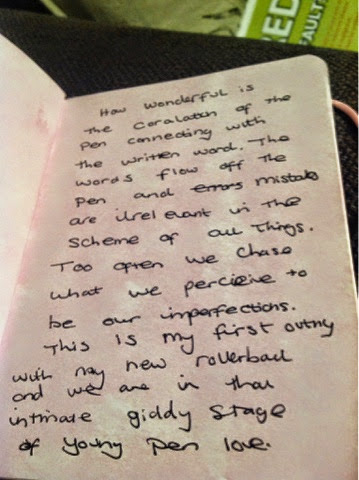 NED
FAULT
How wonderful is
the coralation of the
pen connecting with
the written word. The
words flow off the
pen and errors mistakes
are ilrelevant in the
scheme of all things.
Too often we chase
what we percieve to
be our imperfections.
This is my first outing
with my new rollerball
and we are in that
intimate giddy stage
of young pen love.